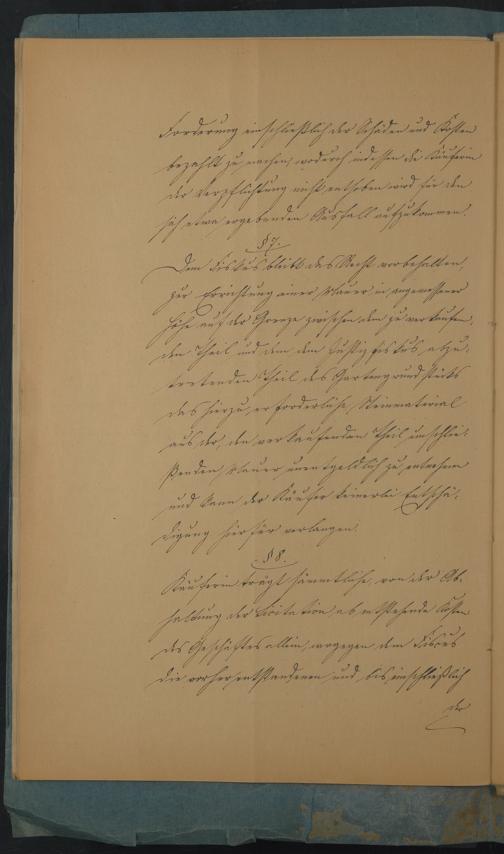 Forderung einschließlich der Schäden und Kosten
bezahlt zu machen, wodurch indessen die Käuferin
der Verpflichtung nicht enthoben wird für den
sich etwa ergebenden Ausfall aufzukommen.
§ 7.
Dem Fiskus bleibt das Recht vorbehalten,
zur Errichtung einer Mauer in angemessener
Höhe auf der Grenze zwischen dem zu verkaufen-
den Theil und dem dem Justizfiskus abzu-
tretenden Theil des Gartengrundstücks
das hierzu erforderliche Steinmaterial
aus der, den verkaufenden Theil umschlie-
ßenden Mauer unentgeldlich zu entnehmen
und kann der Käufer keinerlei Entschä-
digung hierfür verlangen.
§ 8.
Käuferin trägt sämmtliche, von der Ab-
haltung der Licitation ab entstehende Kosten
des Geschäftes allein, wogegen dem Fiscus
die vorher entstandenen und bis einschließlich
der